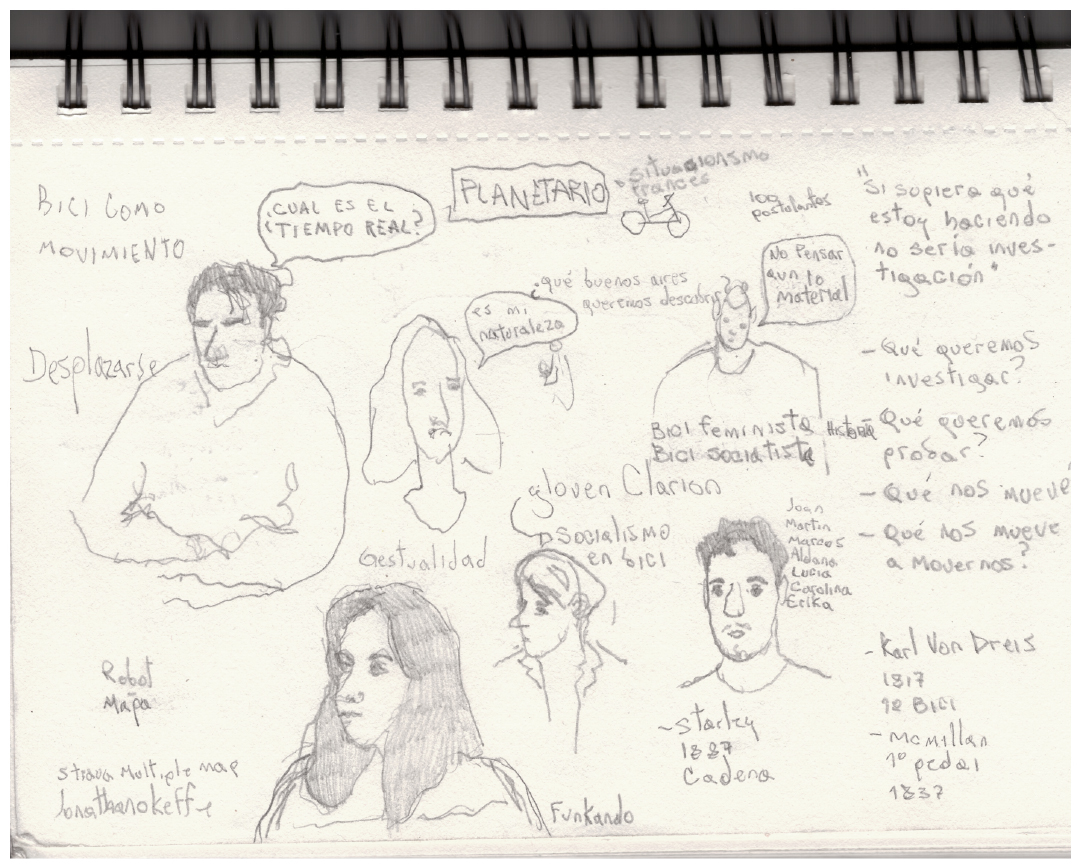 BICI COMO
MOVIMIENTO
¿CUAL ES EL
TIEMPO REAL?
PLANETARIO
situacionsmo
frances
100
postolantes
"Si supiera qué
estoy haciendo
no sería inves-
tigación"
No Pensar
aun lo
material
¿qué buenos aires
queremos descubrir?
es mi
naturaleza
Desplazarse
- Qué queremos
investigar?
Bici feminista Historia
Bici socialista
- Qué queremos
probar?
- Qué nos mueve
- Qué nos mueve
a Movernos?
Joven Clarion
Socialismo
en bici
Gestualidad
Joan
Martin
Marcos
Aldana
Lucia
Carolina
Erika
Robot
Mapa
- Karl Von Dreis
1817
1º BICI
- mcmillan
1º pedal
1837
- Starley
1887
Cadena
Strava Multiple map
Jonathanokeffe
Funkando